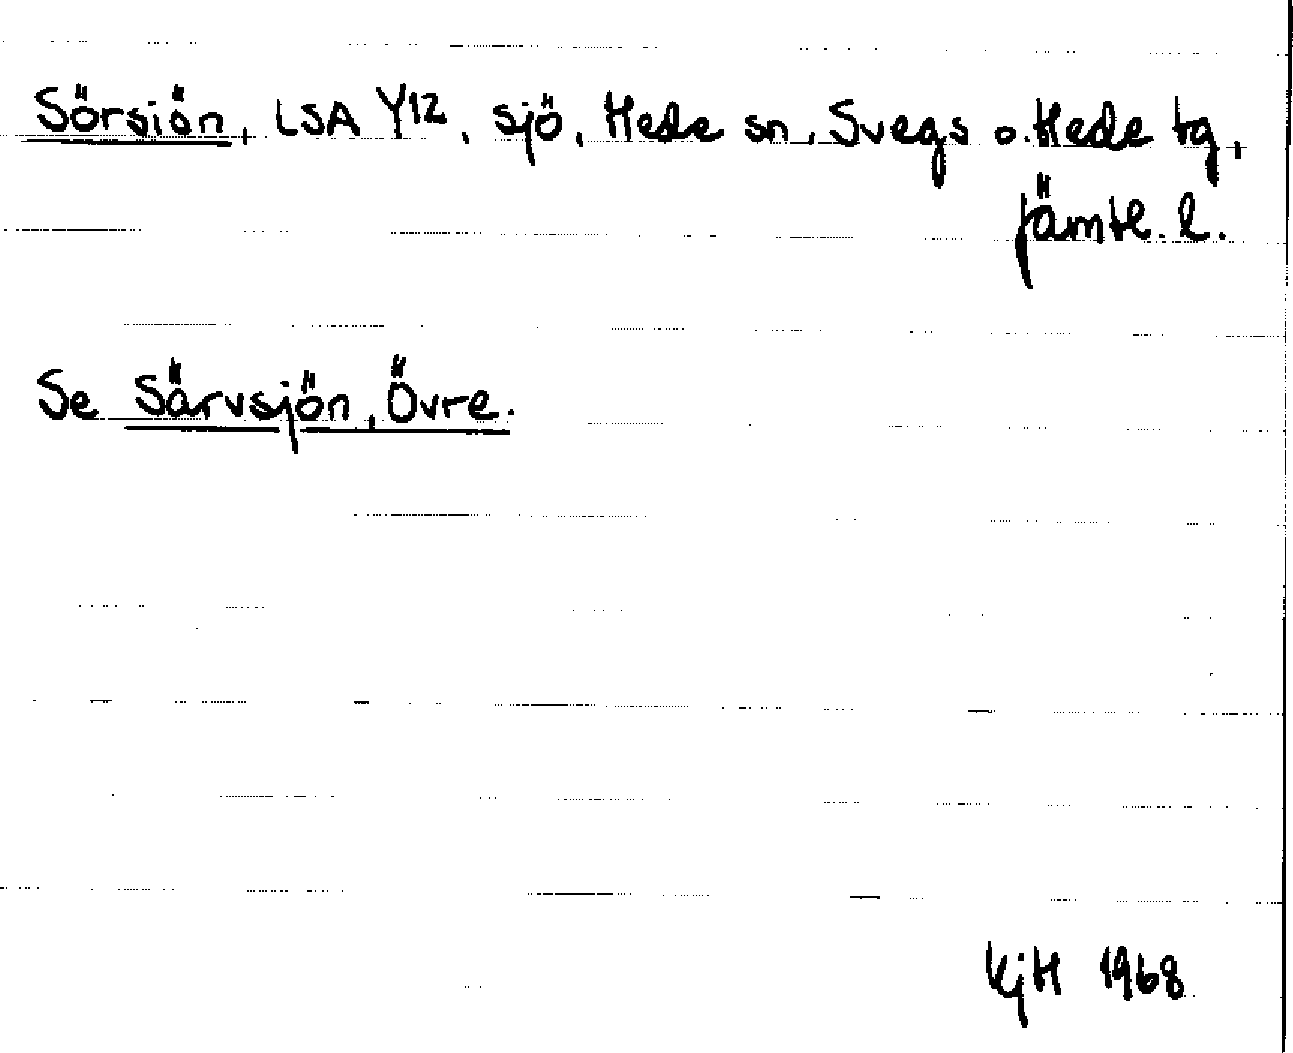 Sörsiön, LSA Y12, sjö, Hede sn, Svegs o. Hede tg,
Jämtl. l.
Se Särvsjön, Övre.
KjH 1968